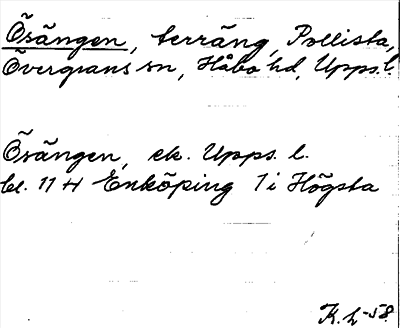 Örängen, terräng, Pollista,
Övergrans sn, Håbo hd, Upps. l.
Örängen, ek. Upps. l.
bl. 11 H Enköping 1 i Högsta
K. h -58.